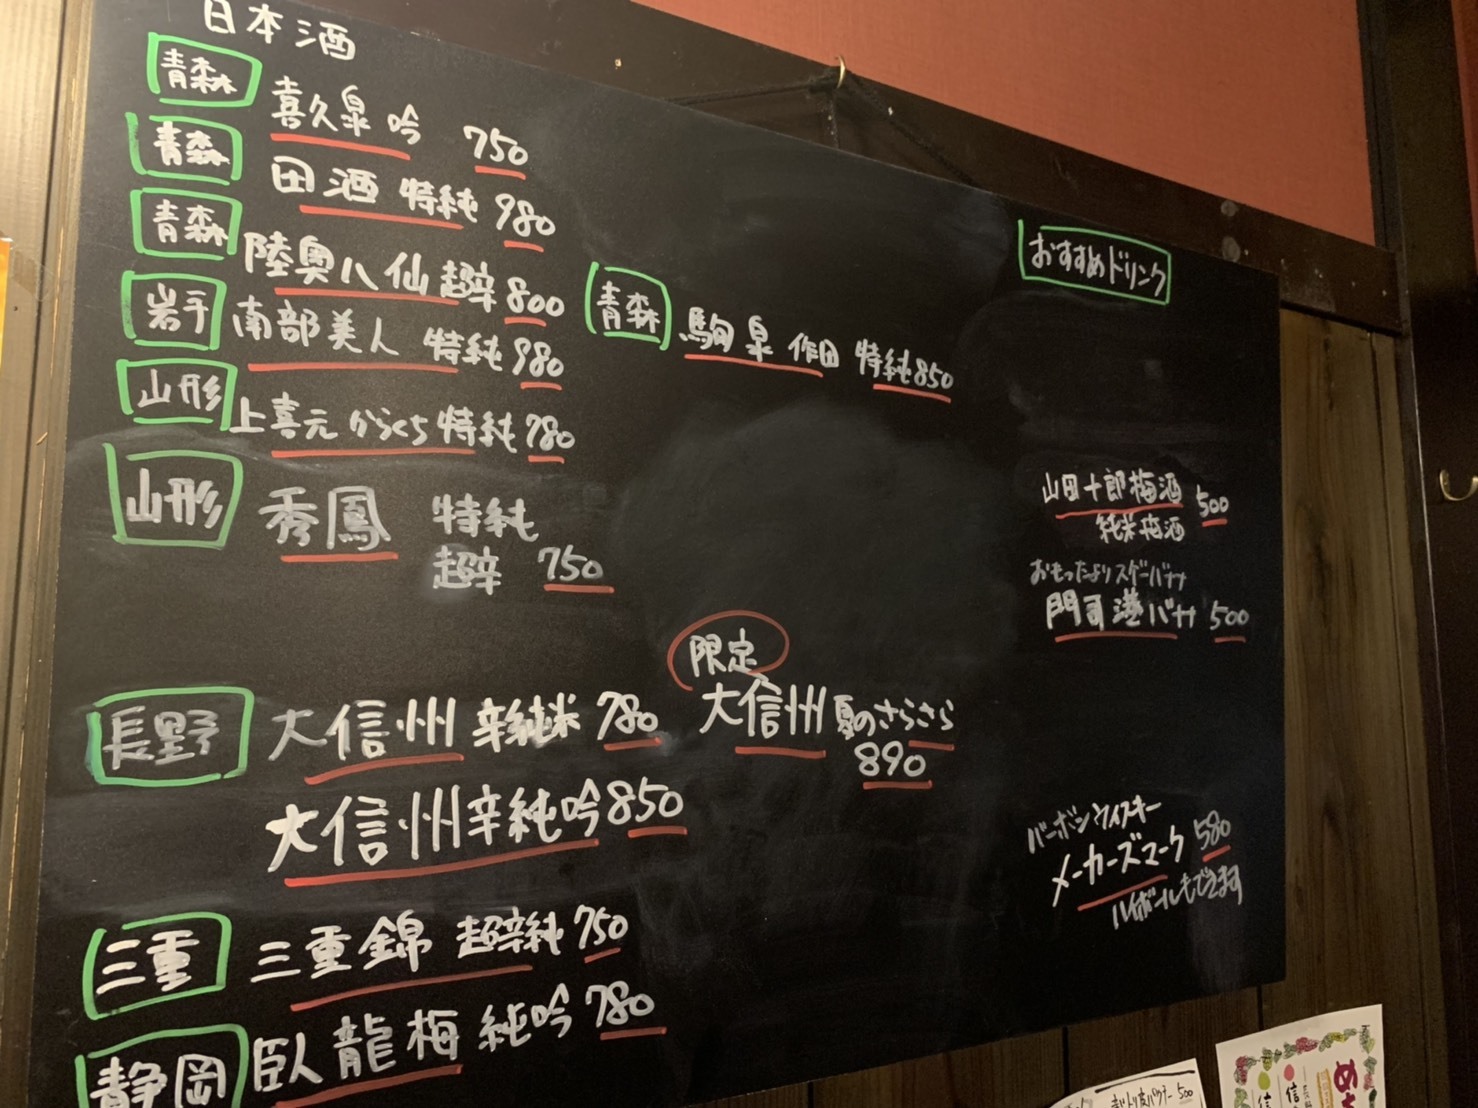 日本酒
青森 喜久泉 吟 750
青森 田酒 特純 980
青森 陸奥八仙 超辛 800
岩手 南部美人 特純 980
山形 上喜元 からくち 特純 780
山形 秀鳳 特純
超辛 750
青森 駒泉 作田 特純 850
長野 大信州 辛純米 780
大信州 辛純吟 850
限定
大信州 夏のさらさら
890
三重 三重錦 超辛純 750
静岡 臥龍梅 純吟 780
おすすめドリンク
山田十郎梅酒 500
純米梅酒
おもったよりスゲーバナナ
門司港バナナ 500
バーボンウイスキー
メーカーズマーク 580
ハイボールもできます
500